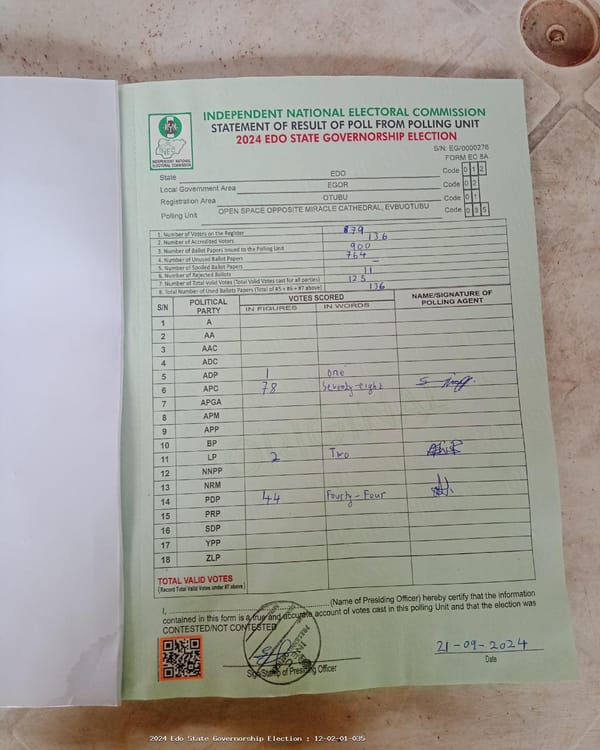 INDEPENDENT NATIONAL ELECTORAL COMMISSION
STATEMENT OF RESULT OF POLL FROM POLLING UNIT
2024 EDO STATE GOVERNORSHIP ELECTION
INDEPENDENT NATIONAL ELECTORAL COMMISSION
S/N: EG/0000276
FORM EC 8A
State EDO Code 0 1 2
Local Government Area EGOR Code 0 2
Registration Area OTUBU Code 0 1
Polling Unit OPEN SPACE OPPOSITE MIRACLE CATHEDRAL, EVBUOTUBU Code 0 3 5
1. Number of Voters on the Register 879
2. Number of Accredited Voters 136
3. Number of Ballot Papers Issued to the Polling Unit 900
4. Number of Unused Ballot Papers 764
5. Number of Spoiled Ballot Papers –
6. Number of Rejected Ballots 11
7. Number of Total Valid Votes (Total Valid Votes cast for all parties) 125
8. Total Number of Used Ballots Papers (Total of #5 + #6 + #7 above) 136
S/N POLITICAL PARTY VOTES SCORED NAME/SIGNATURE OF POLLING AGENT
IN FIGURES IN WORDS
1 A
2 AA
3 AAC
4 ADC
5 ADP 1 one
6 APC 78 Seventy-eight
7 APGA
8 APM
9 APP
10 BP
11 LP 2 Two
12 NNPP
13 NRM
14 PDP 44 Fourty-Four
15 PRP
16 SDP
17 YPP
18 ZLP
TOTAL VALID VOTES
(Record Total Valid Votes under #7 above)
I, (Name of Presiding Officer) hereby certify that the information
contained in this form is a true and accurate account of votes cast in this polling Unit and that the election was
CONTESTED/NOT CONTESTED
21-09-2024
Sign/Stamp of Presiding Officer Date
2024 Edo State Governorship Election : 12-02-01-035